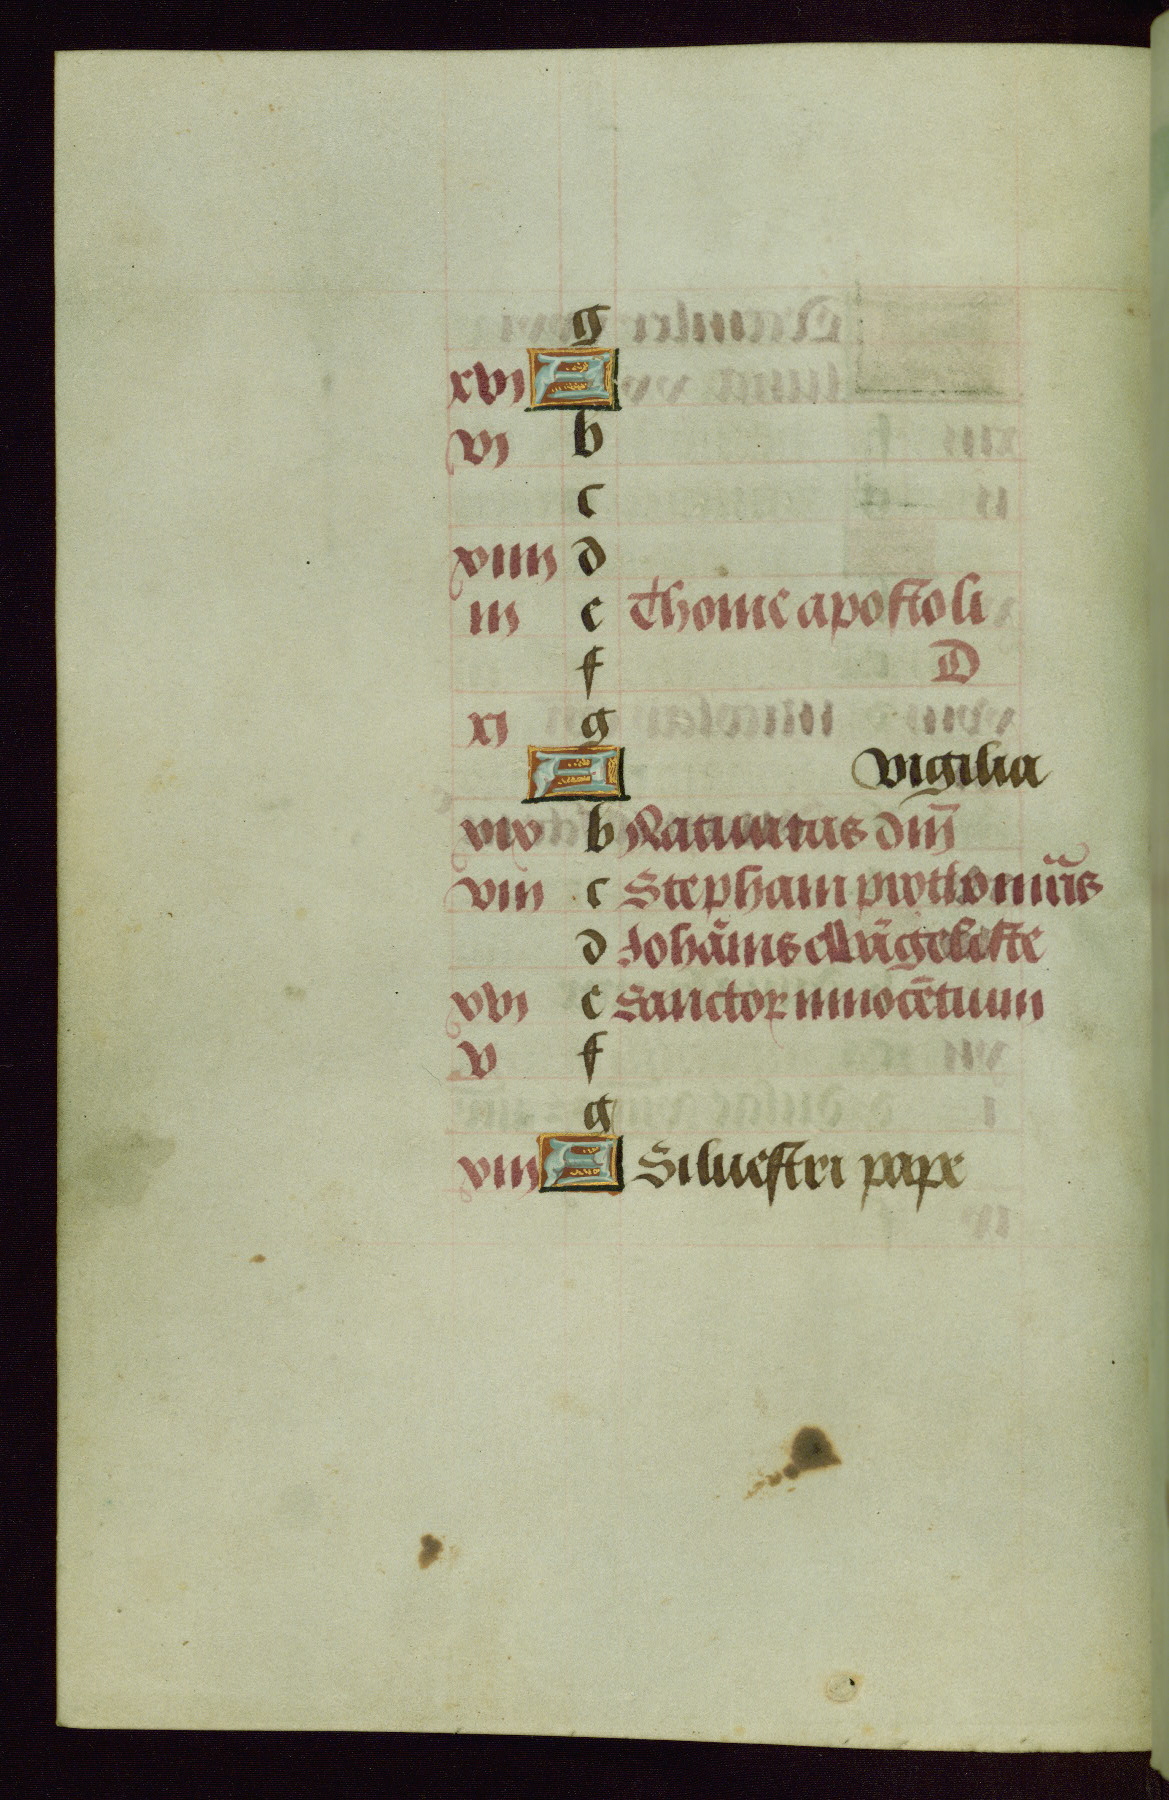 g
xvj A
vj b
c
xiiij d
iij e Thome apostoli
f D
xj g
A vigilia
xix b Natiuitas dm̄
viij c Stephani prothom̄ris
d Johānis ewāgeliste
xvj e Sanctor innocētuum
v f
g
xiij A Siluestri pape